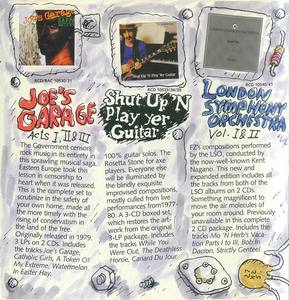 JOE'S GARAGE
RCD/RAC 10530/31
JOE'S
GARAGE
Acts I, II & III
The Government censors
rock music in its entirety in
this sprawling musical saga.
Eastern Europe took this
lesson in censorship to
heart when it was released.
This is the complete set to
scrutinize in the safety of
your own home, made all
the more timely with the
rising of conservatism in
the land of the free.
Original released in 1979.
3 LPs on 2 CDs. Includes
the tracks Joe's Garage,
Catholic Girls, A Token Of
My Extreme, Watermelon
In Easter Hay.
RCD 10533/34/35
Shut Up 'N
Play yer
Guitar
100% guitar solos. The
Rosetta Stone for axe
players. Everyone else
will be illuminated by
the blindly exquisite
improvised compositions,
mostly culled from live
performances from 1977-
80. A 3-CD boxed set,
which restores the art-
work from the original
3-LP package. Includes
the tracks While You
Were Out, The Deathless
Horsie, Canard Du Jour.
RCD 10540/41
LONDON
SYMPHONY
ORCHESTRA
Vol. I & II
FZ's compositions performed
by the LSO, conducted by
the now-well-known Kent
Nagano. This new and
expanded edition includes all
the tracks from both of the
LSO albums on 2 CDs.
Something magnificent to
move the air molecules of
your room around. Previously
unavailable in this complete,
2 CD package. Includes the
tracks Mo 'N Herb's Vaca-
tion Parts I to III, Bob In
Dacron, Strictly Genteel.